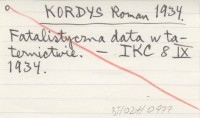 KORDYS Roman 1934.
Fatalistyczna data w ta-
ternictwie. — IKC 8 IX
1934.